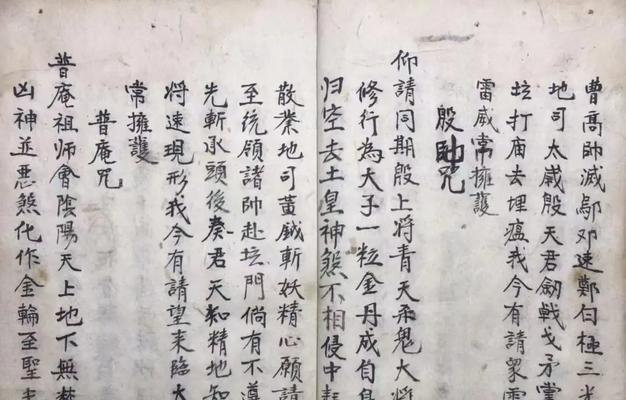 曹高帥滅鄔邓速鄭白極三光
地司太歲殷天君劔戟戈矛掌
坛打庙去埋瘟我今有請衆雷
雷威常擁護
殷帥咒
仰請同期殷上将青天杀鬼大将
修行為大子一粒金丹成自身
归空去土皇神煞不相侵中
散業地司黃鉞斬妖精心願請
至统領諸帥赴坛門倘有不遵
先斬永頭後奏君天知精地知
将速現形我今有請望来臨大
常擁護
普庵咒
普庵祖师會陰陽天上地下無禁
凶神並悪煞化作金輪至聖